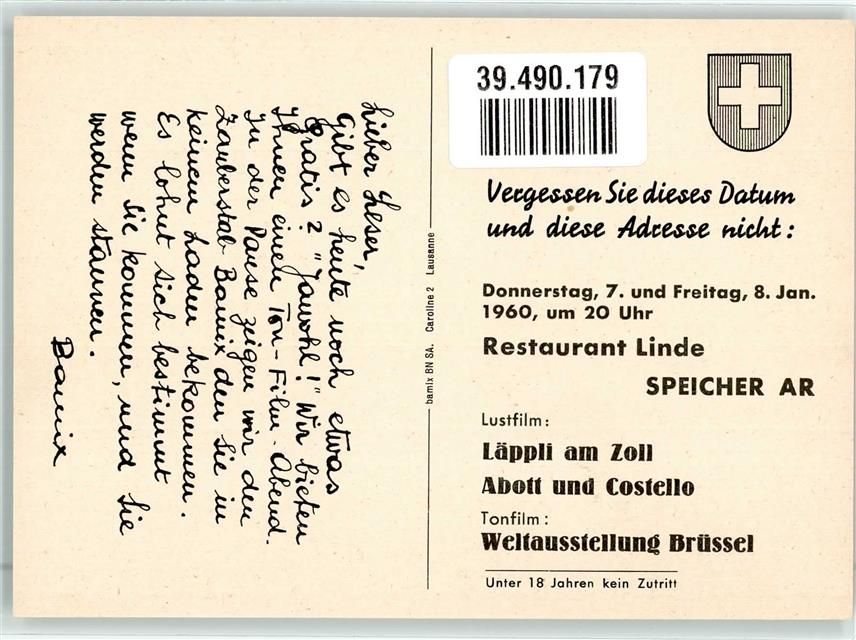 Lieber Leser,
Gibt es heute noch etwas
Gratis? "Jawohl!" Wir bieten
Ihnen einen Ton-Film-Abend.
In der Pause zeigen wir den
Zauberstab Bamix den Sie in
keinem Laden bekommen.
Es lohnt sich bestimmt
wenn Sie kommen, und Sie
werden staunen.
Bamix
bamix BN SA. Caroline 2 Lausanne
39.490.179
Vergessen Sie dieses Datum
und diese Adresse nicht:
Donnerstag, 7. und Freitag, 8. Jan.
1960, um 20 Uhr
Restaurant Linde
SPEICHER AR
Lustfilm:
Läppli am Zoll
Abott und Costello
Tonfilm:
Weltausstellung Brüssel
Unter 18 Jahren kein Zutritt